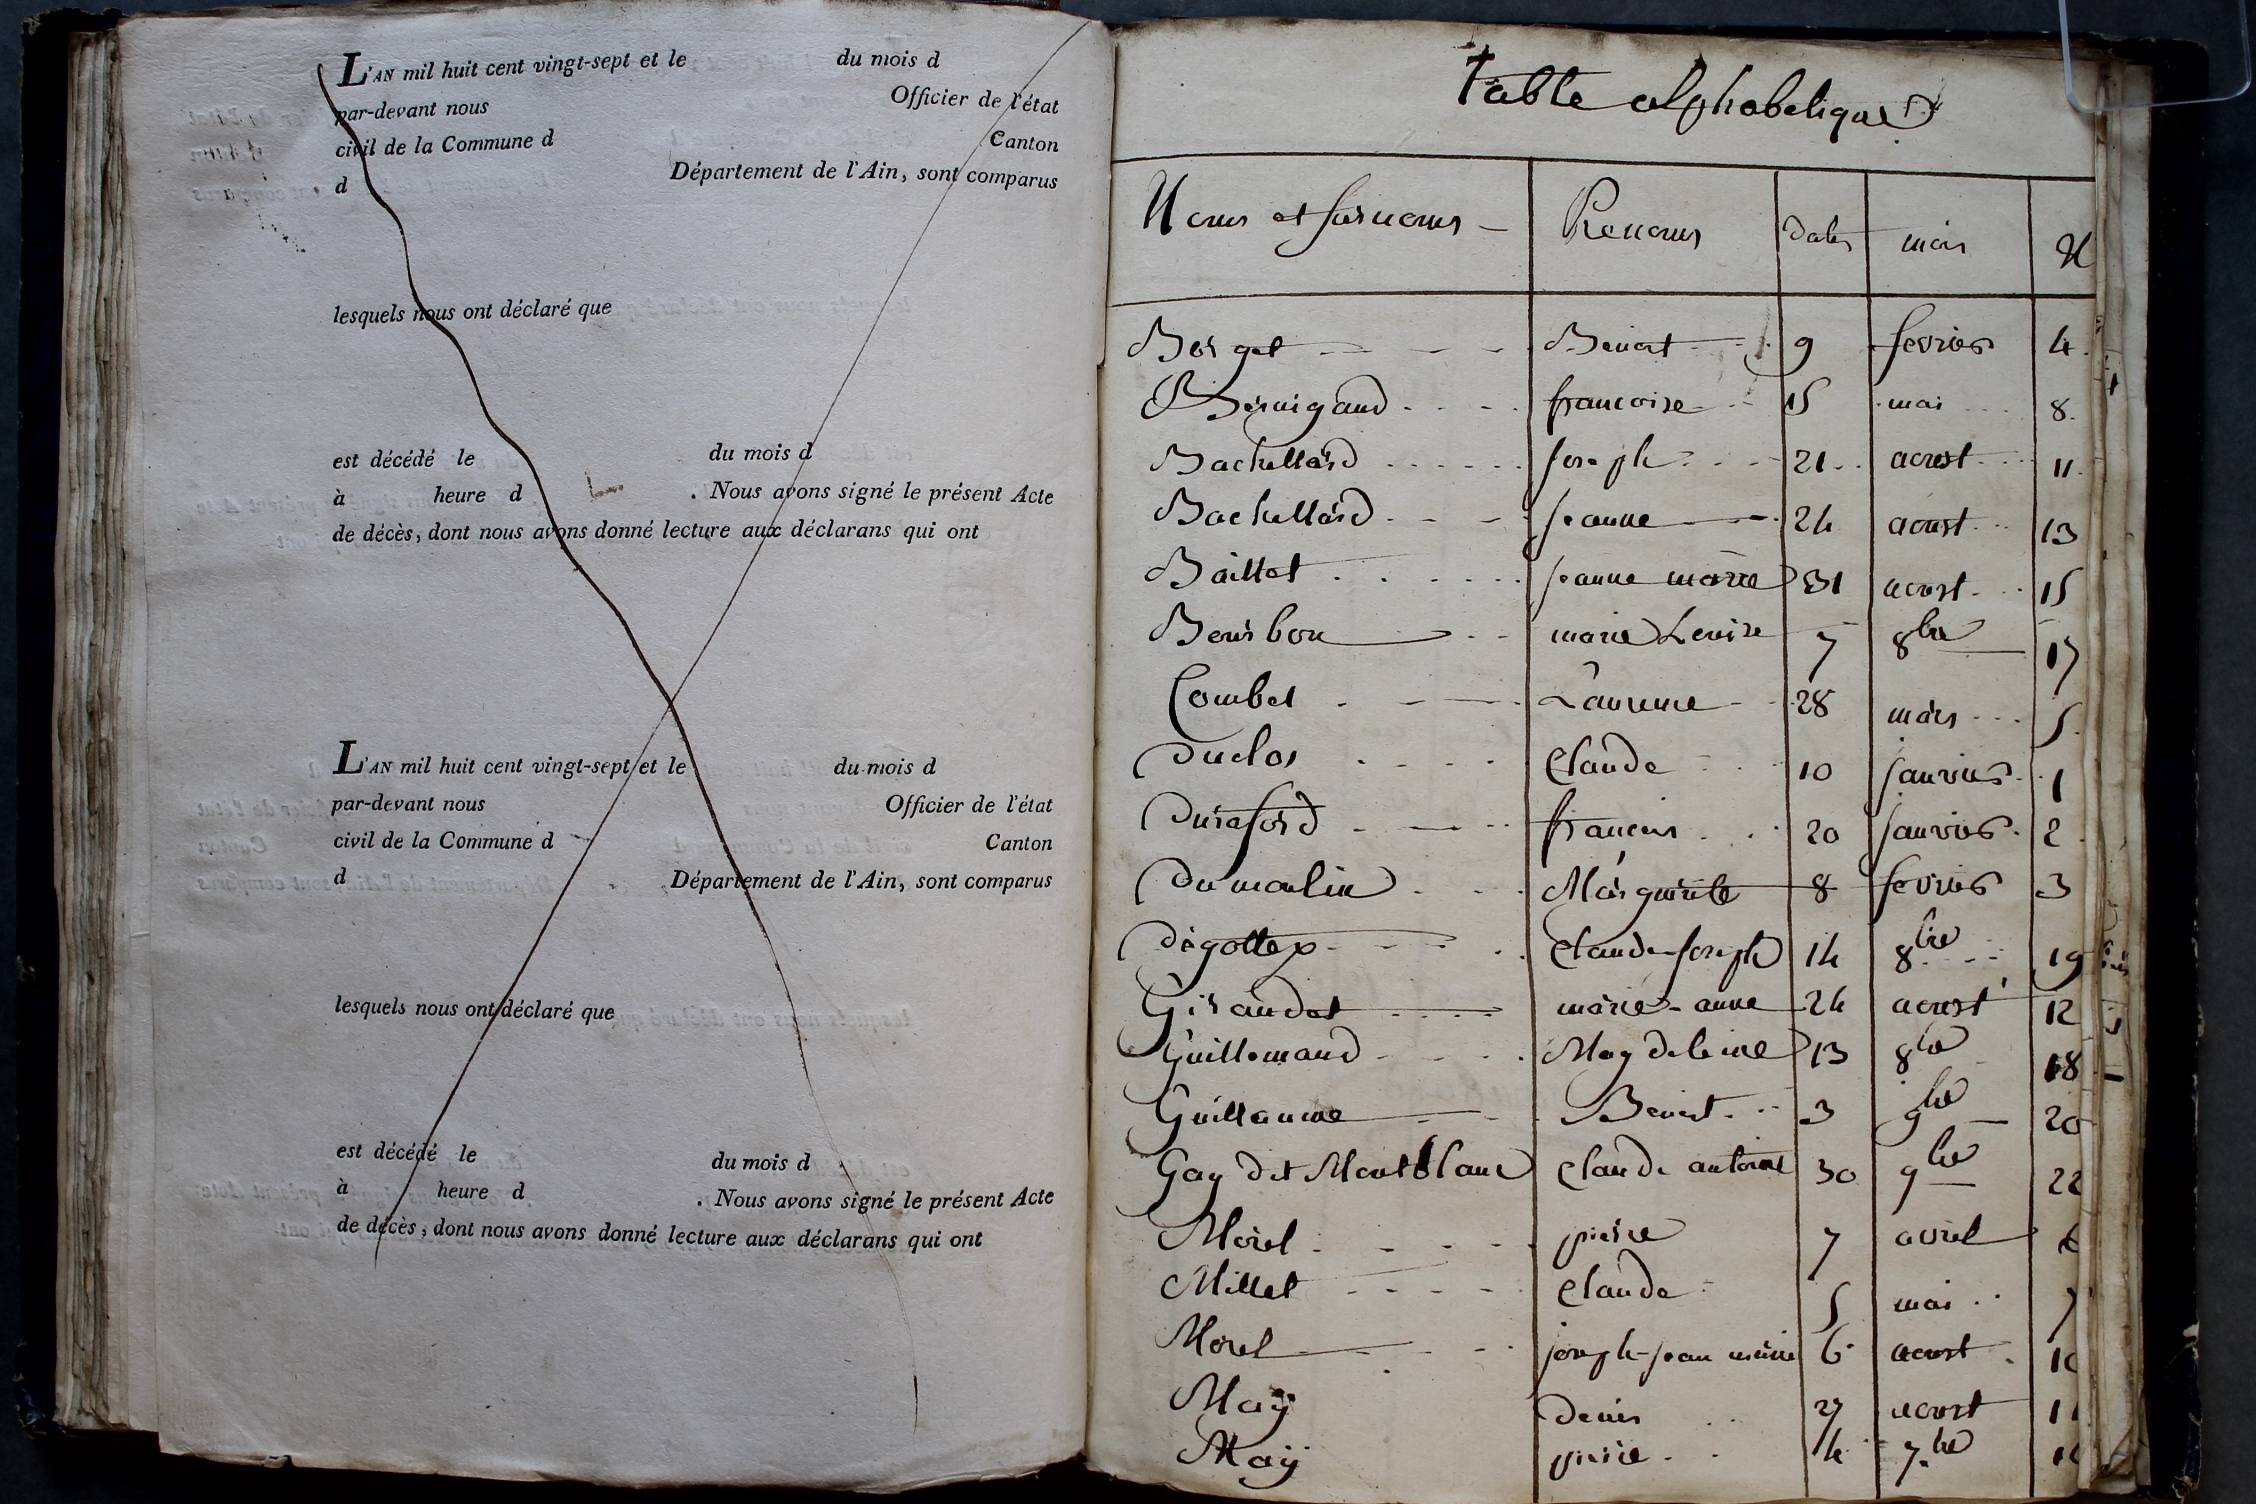 L'AN mil huit cent vingt-sept et le du mois d
par-devant nous Officier de l'état
civil de la Commune d Canton
d Département de l'Ain, sont comparus
lesquels nous ont déclaré que
est décédé le du mois d
à heure d . Nous avons signé le présent Acte
de décès, dont nous avons donné lecture aux déclarans qui ont
L'AN mil huit cent vingt-sept et le du mois d
par-devant nous Officier de l'état
civil de la Commune d Canton
d Département de l'Ain, sont comparus
lesquels nous ont déclaré que
est décédé le du mois d
à heure d . Nous avons signé le présent Acte
de décès, dont nous avons donné lecture aux déclarans qui ont
table alphabetique
Noms et surnoms Prenoms dates mois N
Borget Benoit 9 fevrier 4
francoise 15 mai 8
Bachellard joseph 21 aoust 11
Bachellard jeanne 24 aoust 13
Baillet jeanne marie 31 aoust 15
Bourbon marie Louise 7 8bre 17
Combet 28 mars 5
duclos Claude 10 janvier 1
duraford francois 20 janvier 2
dumoulin Marguerite 8 fevrier 3
dégottex Claude joseph 14 8bre 19
Giraudet marie-anne 24 aoust 12
Guillemaud Magdeleine 13 8bre 18
Guillaume Benoit 3 9bre 20
Gay dit Montblanc Claude antoine 30 9bre 22
Morel pierre 7 avril 6
Millet Claude 5 mai 7
Morel joseph-jean marie 6 aoust 10
Maÿ denis 27 aoust
Maÿ pierre 4 7bre